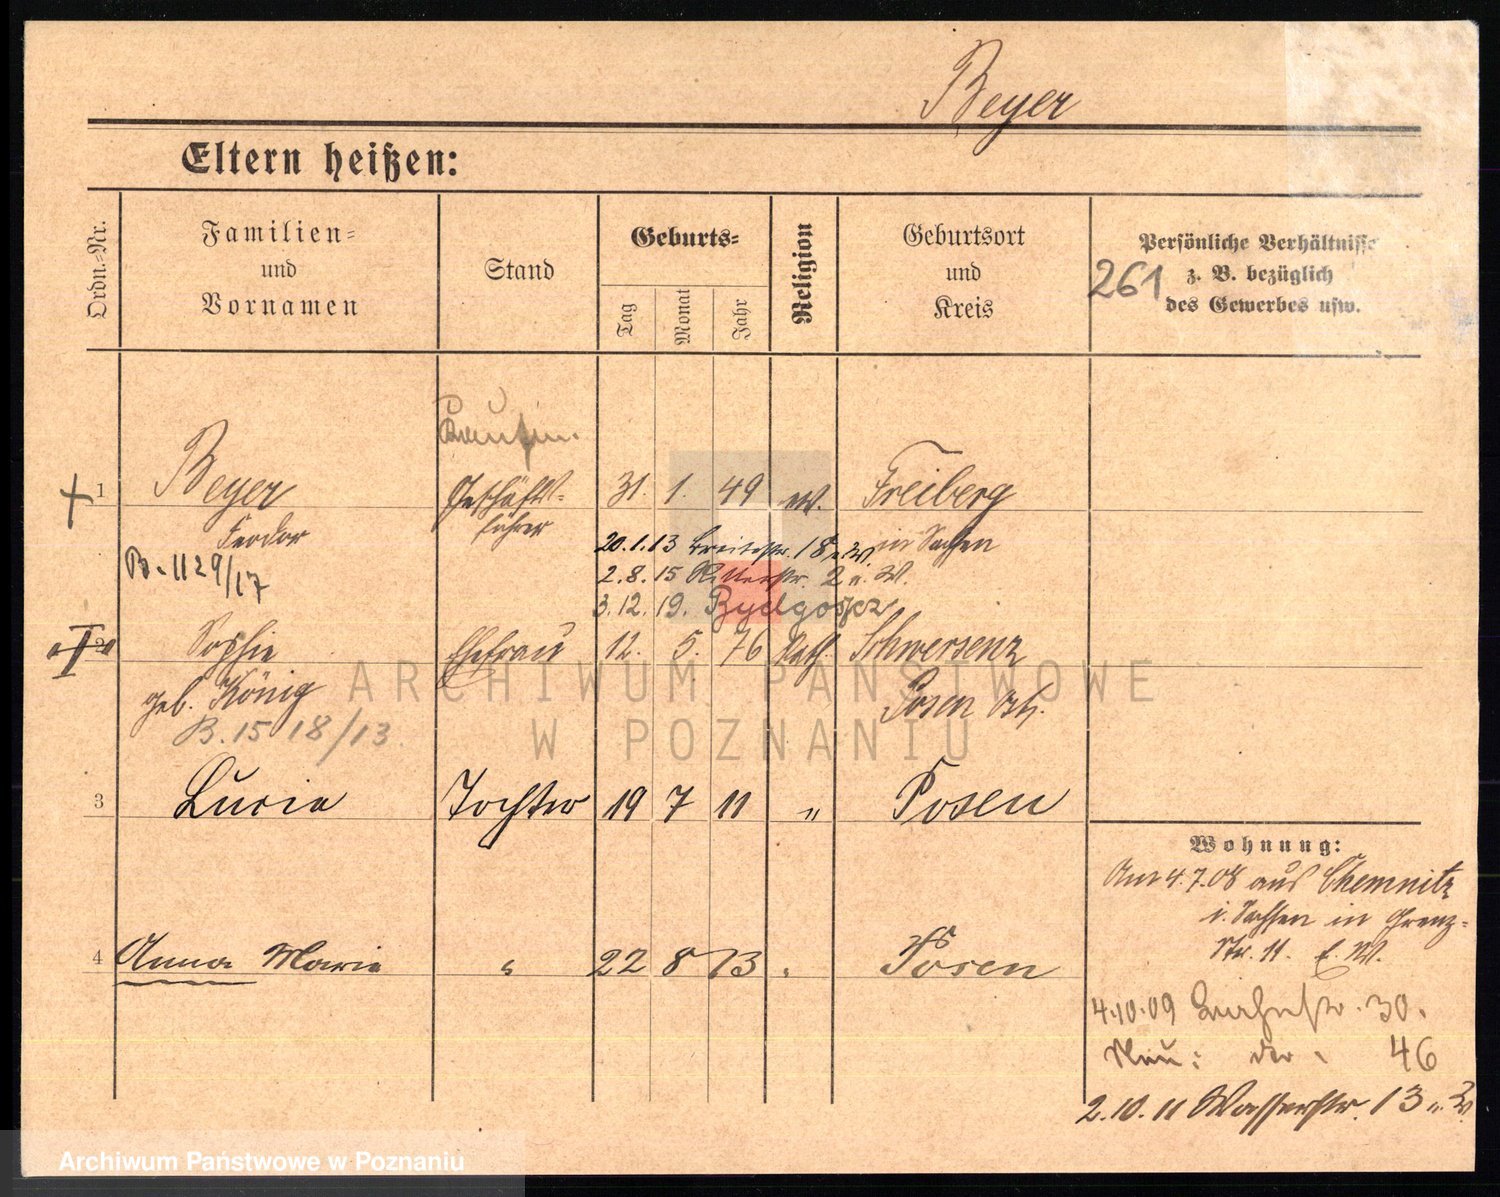 Beyer
Eltern heißen:
Ordn.-Nr.
Familien-
und
Vornamen
Stand
Geburts-
Tag
Monat
Jahr
Religion
Geburtsort
und
Kreis
Persönliche Verhältnisse
z. B. bezüglich
des Gewerbes usw.
261
1
Beyer
Feodor
B. 1129/17
Geschäfts-
führer
31. 1. 49
ev.
Freiberg
in Sachsen
20.1.13 Breitestr. 18 u. W.
2.8.15 Ritterstr. 2 u. W.
3.12.19. Bydgoszcz
2
Sophie
geb. König
B. 1518/13.
Ehefrau
12. 5. 76
kath.
Schwersenz
Posen Ost.
3
Lucia
Tochter
19 7 11
"
Posen
4
Anna Marie
"
22 8 13
"
Posen
Wohnung:
Am 4.7.08 aus Chemnitz
i. Sachsen in Grenz-
Str. 11.
4.10.09 30.
Neu: 46
2.10.11 Wasserstr. 13 u. W
ARCHIWUM PAŃSTWOWE
W POZNANIU
Archiwum Państwowe w Poznaniu